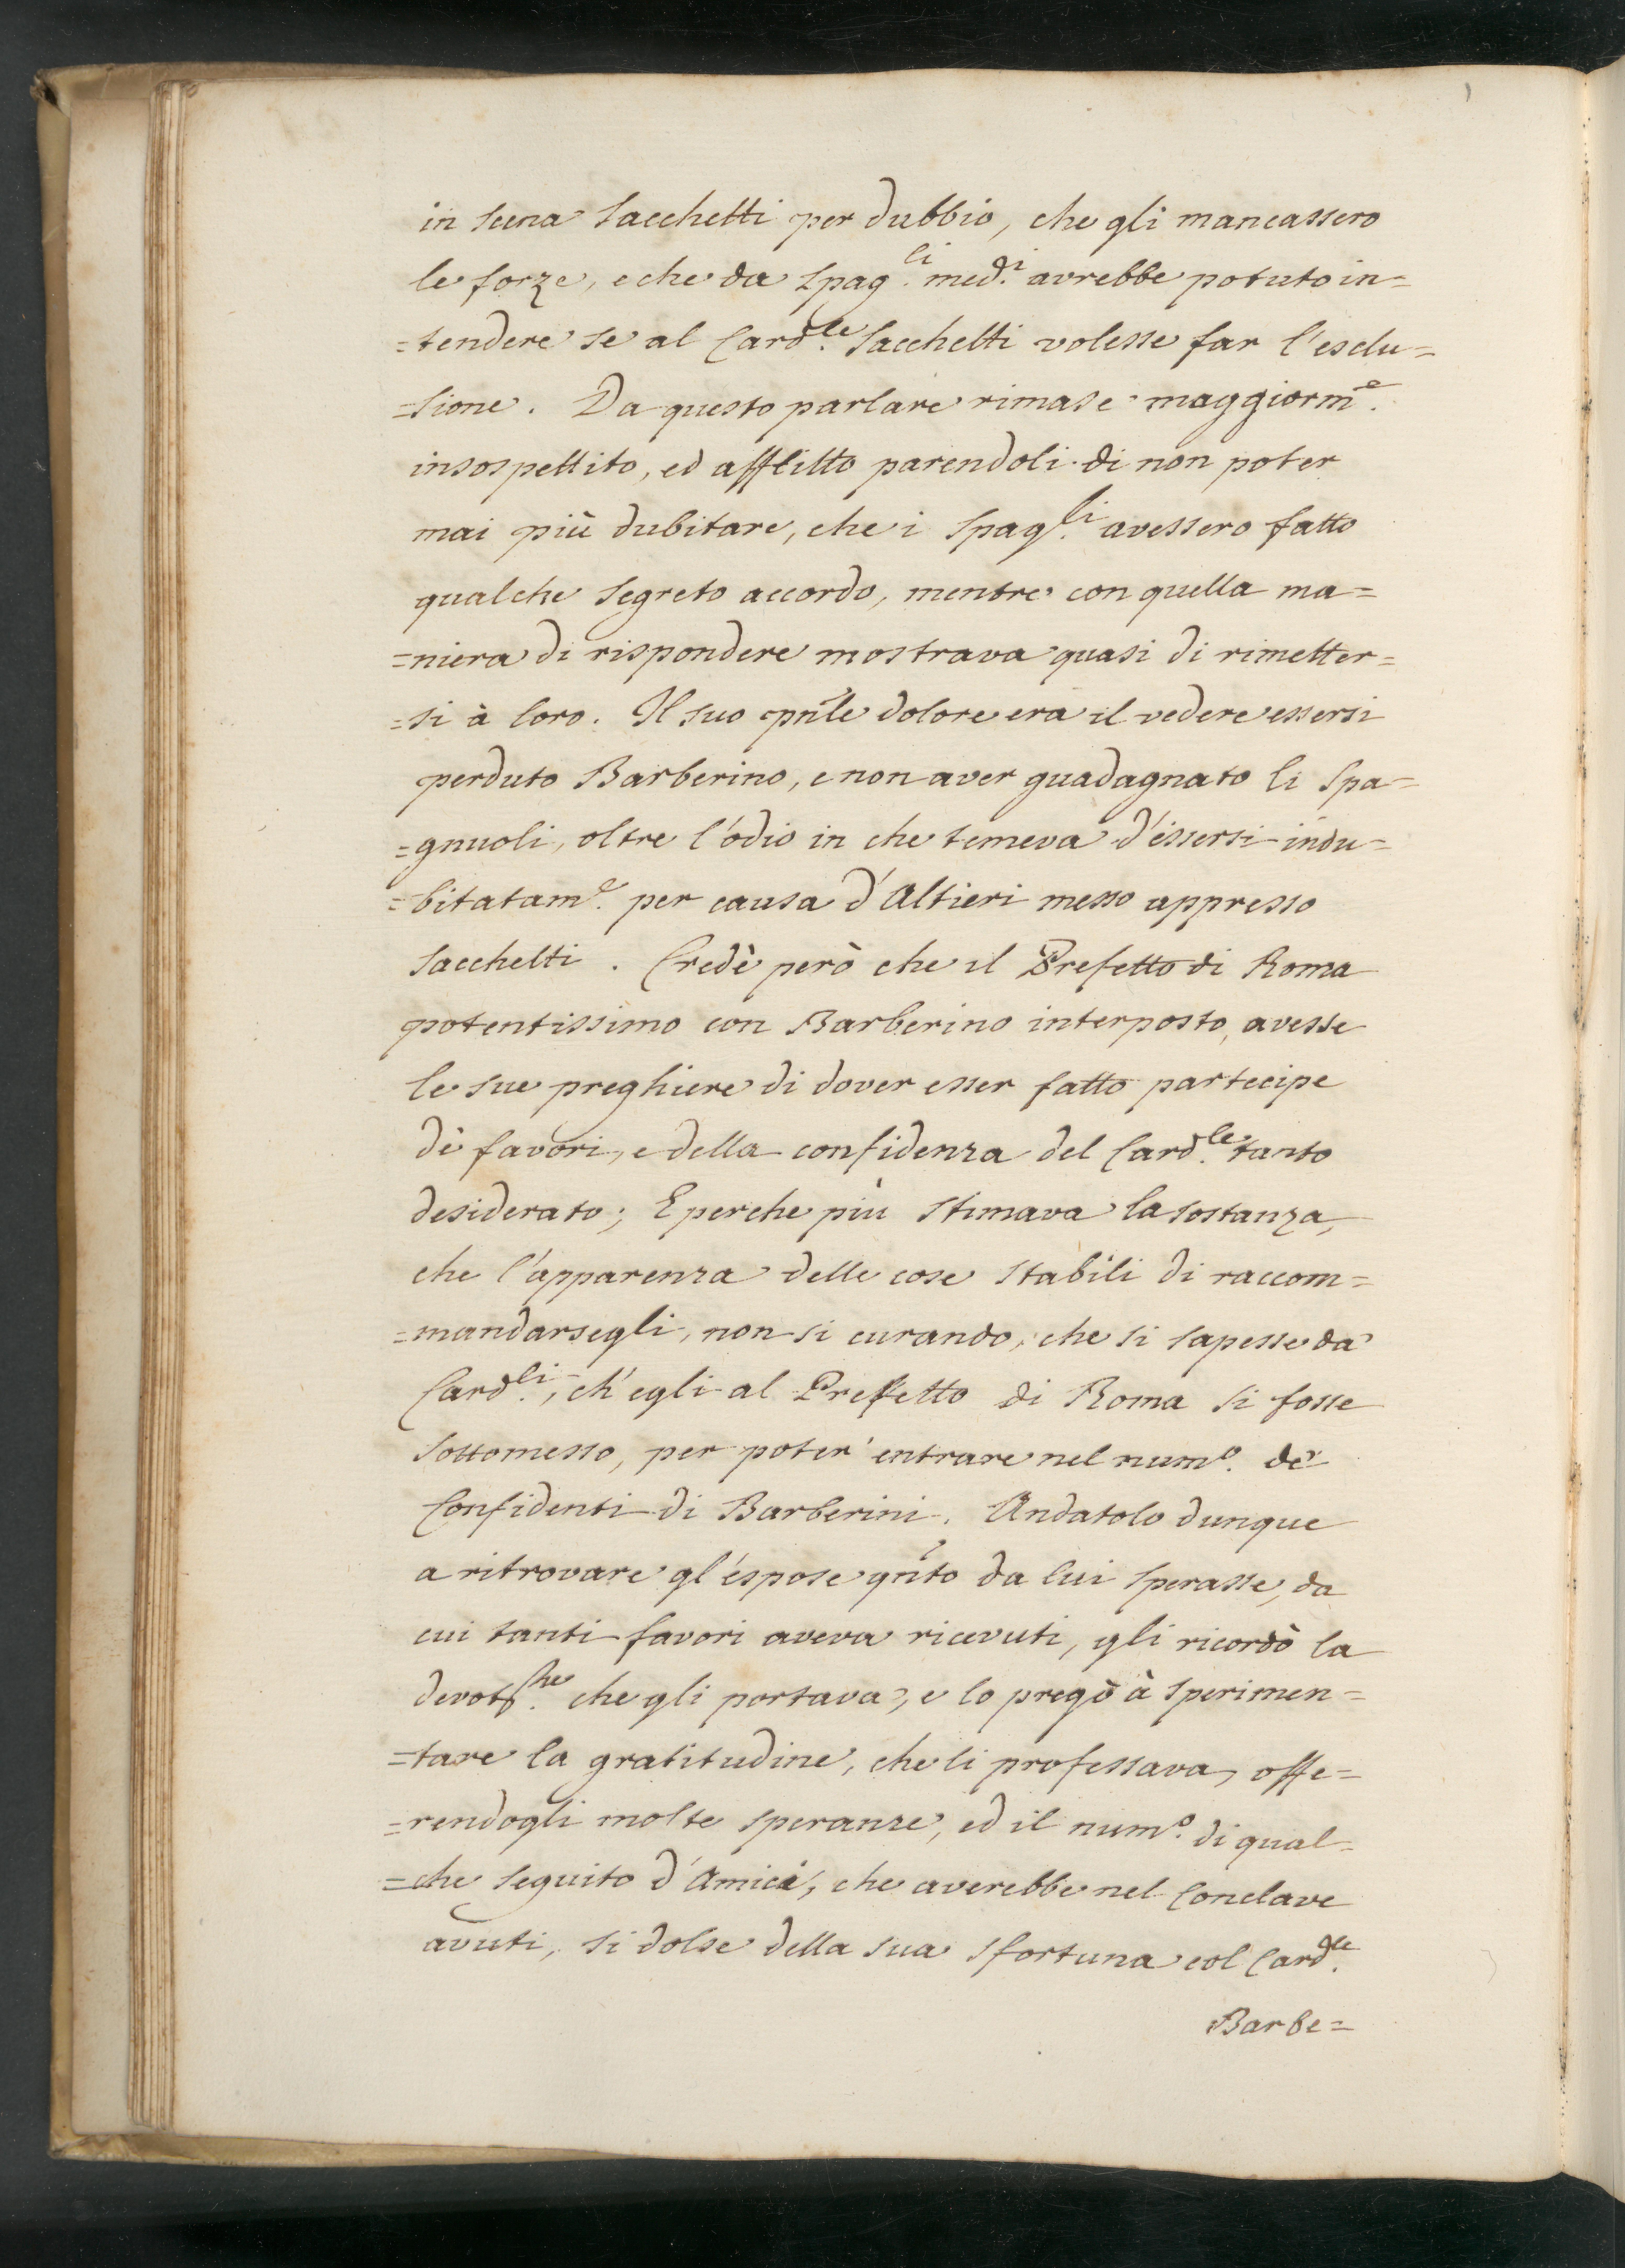 in scena Sacchetti per dubbio, che gli mancassero
le forze, e che da Spag.li med.i avrebbe potuto in=
=tendere se al Card.le Sacchetti volesse far l'esclu=
=sione. Da questo parlare rimase maggiorm.e
insospettito, ed afflitto parendoli di non poter
mai più dubitare, che i Spag.li avessero fatto
qualche segreto accordo, mentre con quella ma=
=niera di rispondere mostrava quasi di rimetter=
=si à loro. Il suo pnle dolore era il vedere essersi
perduto Barberino, e non aver guadagnato li Spa=
=gnuoli, oltre l'odio in che temeva d'essersi indu=
=bitatam.e per causa d'Altieri messo appresso
Sacchetti. Credè però che il Prefetto di Roma
potentissimo con Barberino interposto, avesse
le sue preghiere di dover esser fatto partecipe
dè favori, e della confidenza del Card.le tanto
desiderato; E perche più stimava la sostanza,
che l'apparenza delle cose stabilì di raccom=
=mandarsegli, non si curando, che si sapesse da'
Card.li, ch'egli al Prefetto di Roma si fosse
sottomesso, per poter' entrare nel num.o de'
Confidenti di Barberini. Andatolo dunque
a ritrovare gl'espose qnto da lui sperasse, da
cui tanti favori aveva ricevuti, gli ricordò la
che gli portava, e lo pregò à sperimen=
=tare la gratitudine, che li professava, offe=
=rendogli molte speranze, ed il num.o di qual=
=che seguito d'Amici, che averebbe nel Conclave
avuti, si dolse della sua sfortuna col Card.le
Barbe=